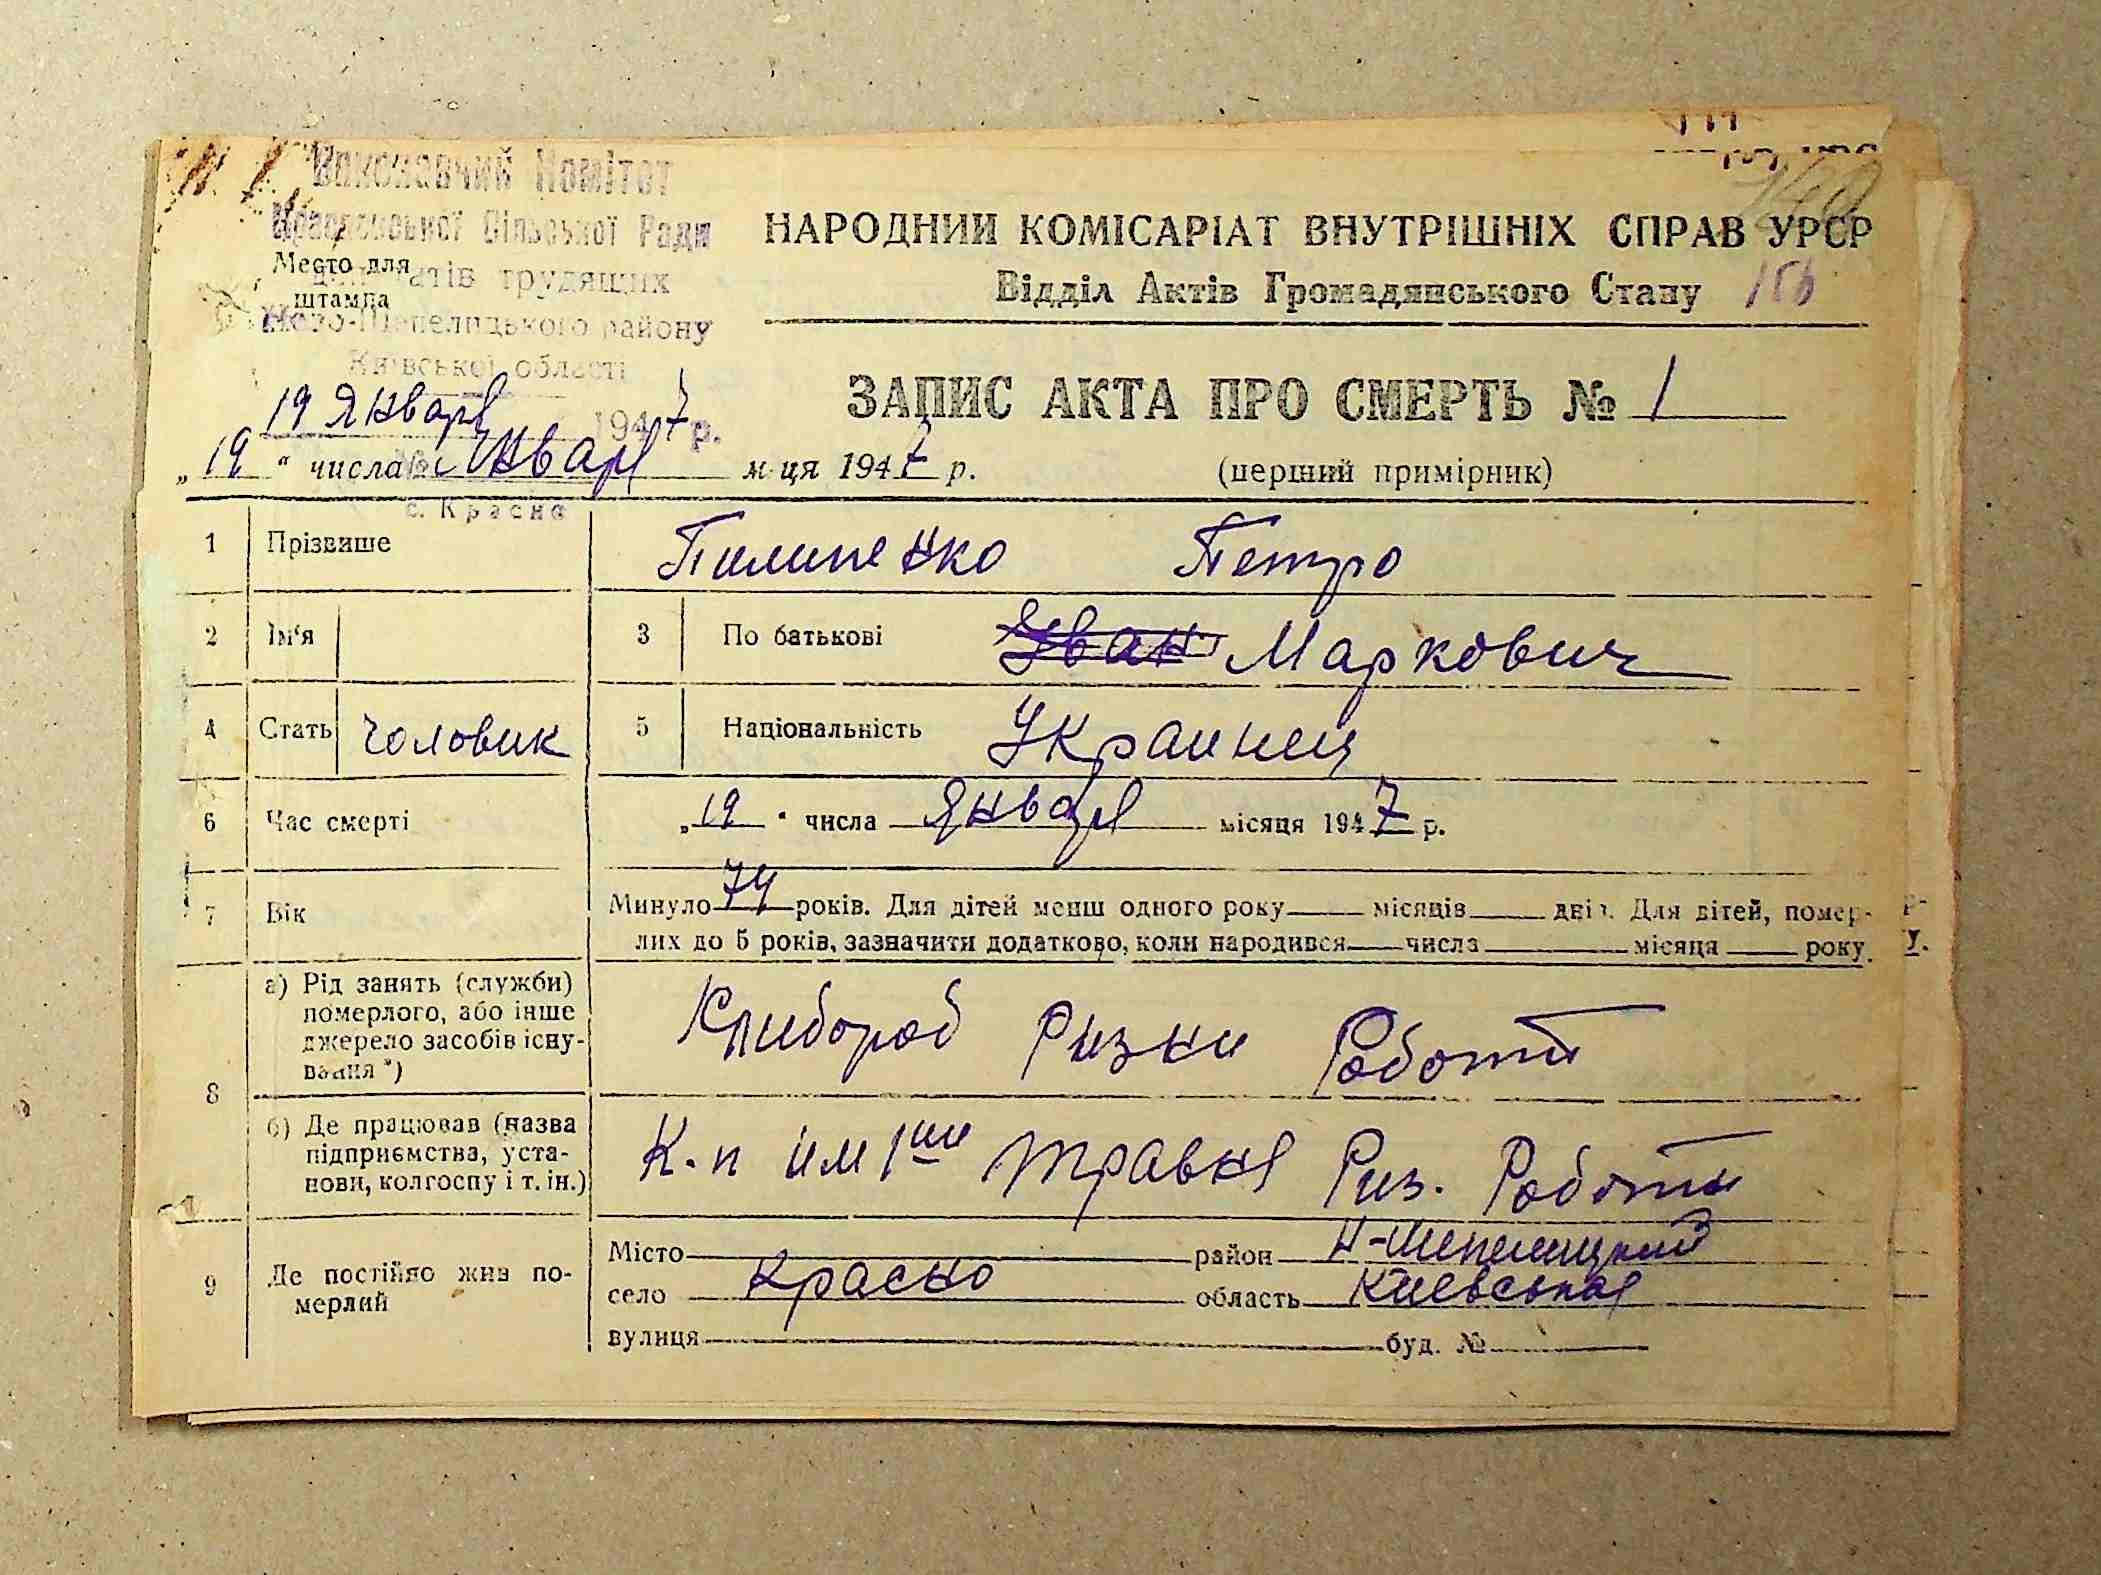 Виконавчий Комітет
Сільської Ради
НАРОДНИЙ КОМІСАРІАТ ВНУТРІШНІХ СПРАВ УРСР
Место для
штампа
трудящих
Відділ Актів Громадянського Стану 156
Ново-Шепелицького району
Київської області
19 Января 1947 р.
ЗАПИС АКТА ПРО СМЕРТЬ № 1
„19“ числа Январ м-ця 1947 р.
(перший примірник)
с. Красне
1 Прізвише Пилипенко Петро
2 Ім'я 3 По батькові Иван Маркович
4 Стать Чоловик 5 Національність Украинец
6 Час смерті „19“ числа Января місяця 1947 р.
7 Вік Минуло 74 років. Для дітей менш одного року місяців днів. Для дітей, помер-
лих до 5 років, зазначити додатково, коли народився числа місяця року.
8 а) Рід занять (служби) померлого, або інше джерело засобів існу-вання*) Хлибороб Ризни Роботи
б) Де працював (назва підприємства, уста-нови, колгоспу і т. ін.) К-п им 1ши травня Риз. Роботи
9 Де постійно жив по-мерлий
Місто район Н-Шепелицкий
село Красно область Киевськая
вулиця буд. №